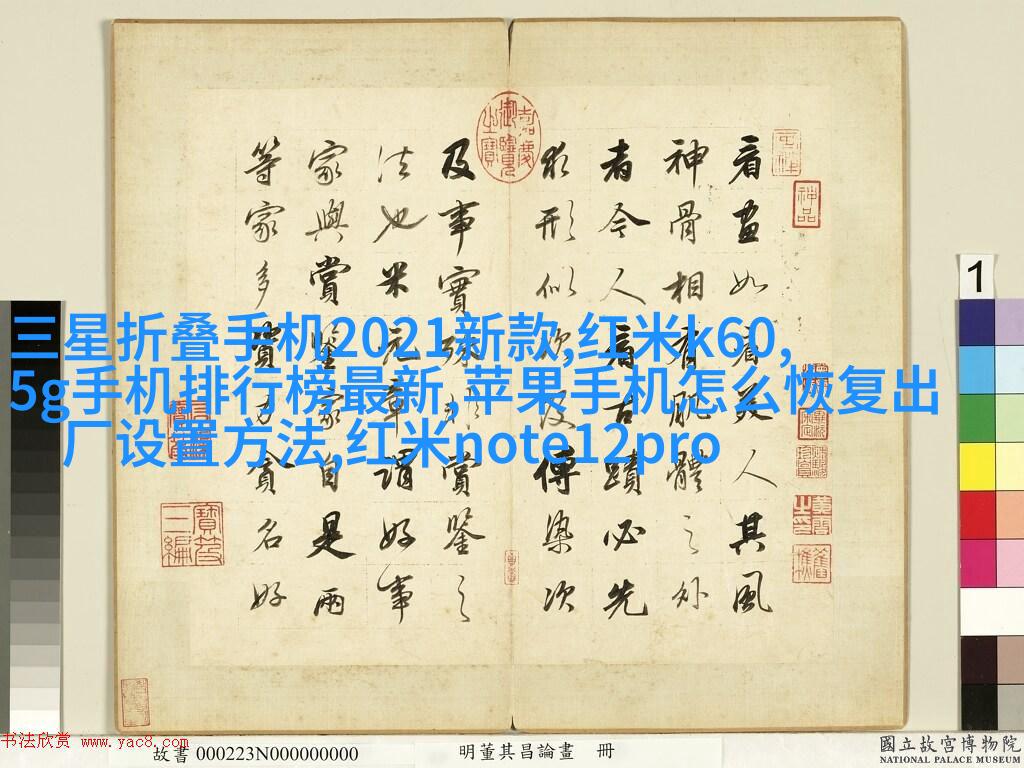 看畫如看美人其風
神骨相有肌體之外
者今人看古蹟必先
求形似次及傳染次
及事實殊非賞鑒之
法也米元章謂好事
家與賞鑒家自是兩
等家多資力貪名好
嘉慶御覽之寶
神品
寶笈三編
三星折叠手机2021新款,红米k60,
5g手机排行榜最新,苹果手机怎么恢复出
厂设置方法,红米note12pro
1
书法欣赏 www.yac8.com
故書 000223N000000000
明董其昌論畫 冊
國立故宮博物院
NATIONAL PALACE MUSEUM